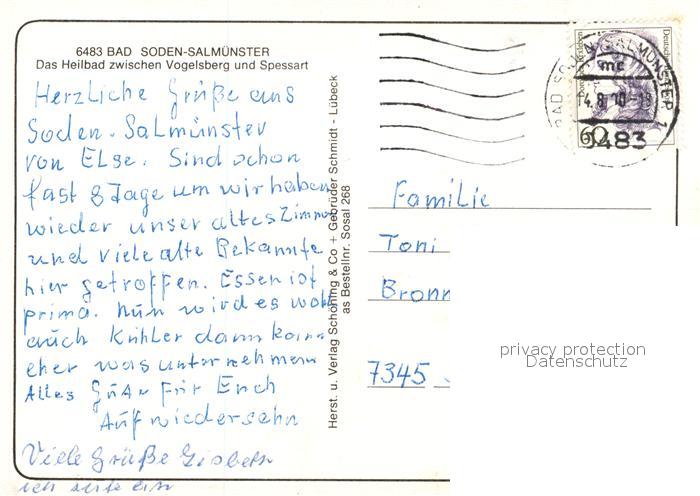 6483 BAD SODEN-SALMÜNSTER
Das Heilbad zwischen Vogelsberg und Spessart
Herzliche Grüße aus
Soden-Salmünster
von Else. Sind schon
fast 8 Tage um wir haben
wieder unser altes Zimme
und viele alte Bekannte
hier getroffen. Essen ist
prima. Nun wird es wohl
auch Kühler dann kann
eher was unternehmen
Alles für Euch
Aufwiedersehn
Viele Grüße
Herst. u. Verlag Schöning & Co + Gebrüder Schmidt - Lübeck
as Bestellnr. Sosal 268
Deutsche
60
mc
6483
Familie
Toni
Bronn
7345
privacy protection
Datenschutz